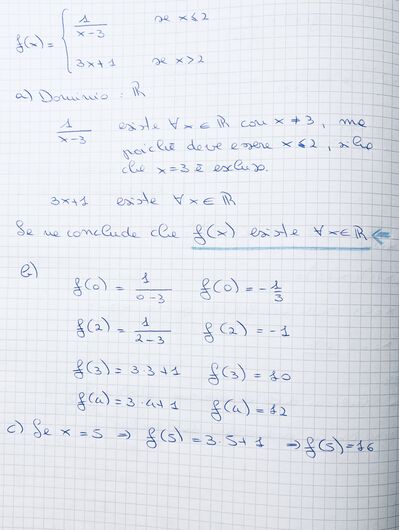 f(x) = { 1/(x-3) se x ≤ 2
3x+1 se x > 2
a) Dominio : ℝ
1/(x-3) esiste ∀ x ∈ ℝ con x ≠ 3, ma
poiché deve essere x ≤ 2, si ha
che x = 3 è escluso.
3x+1 esiste ∀ x ∈ ℝ
Se ne conclude che f(x) esiste ∀ x ∈ ℝ ←
b)
f(0) = 1/(0-3) f(0) = -1/3
f(2) = 1/(2-3) f(2) = -1
f(3) = 3·3+1 f(3) = 10
f(a) = 3·a+1 f(a) = 12
c) Se x = 5 ⇒ f(5) = 3·5+1 ⇒ f(5) = 16